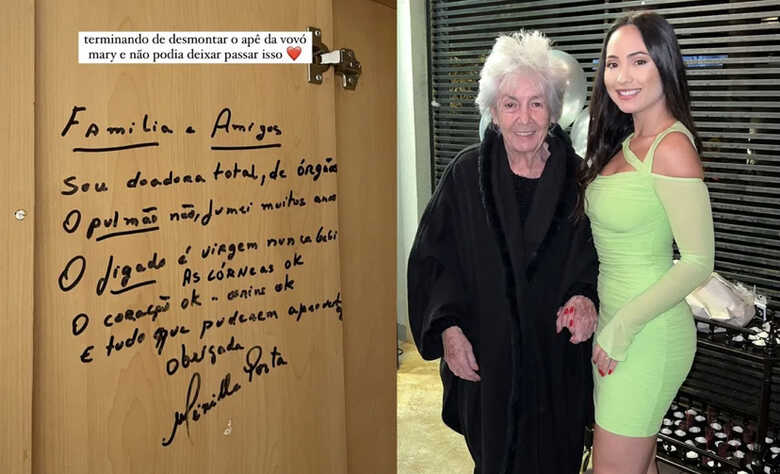 terminando de desmontar o apê da vovó
mary e não podia deixar passar isso ❤️
Familia e Amigos
Sou doadora total, de órgãos
O pulmão não, fumei muitos anos
O figado é virgem nunca bebi
As córneas ok
O coração ok - os rins ok
E tudo que puderem aproveitar
Obrigada